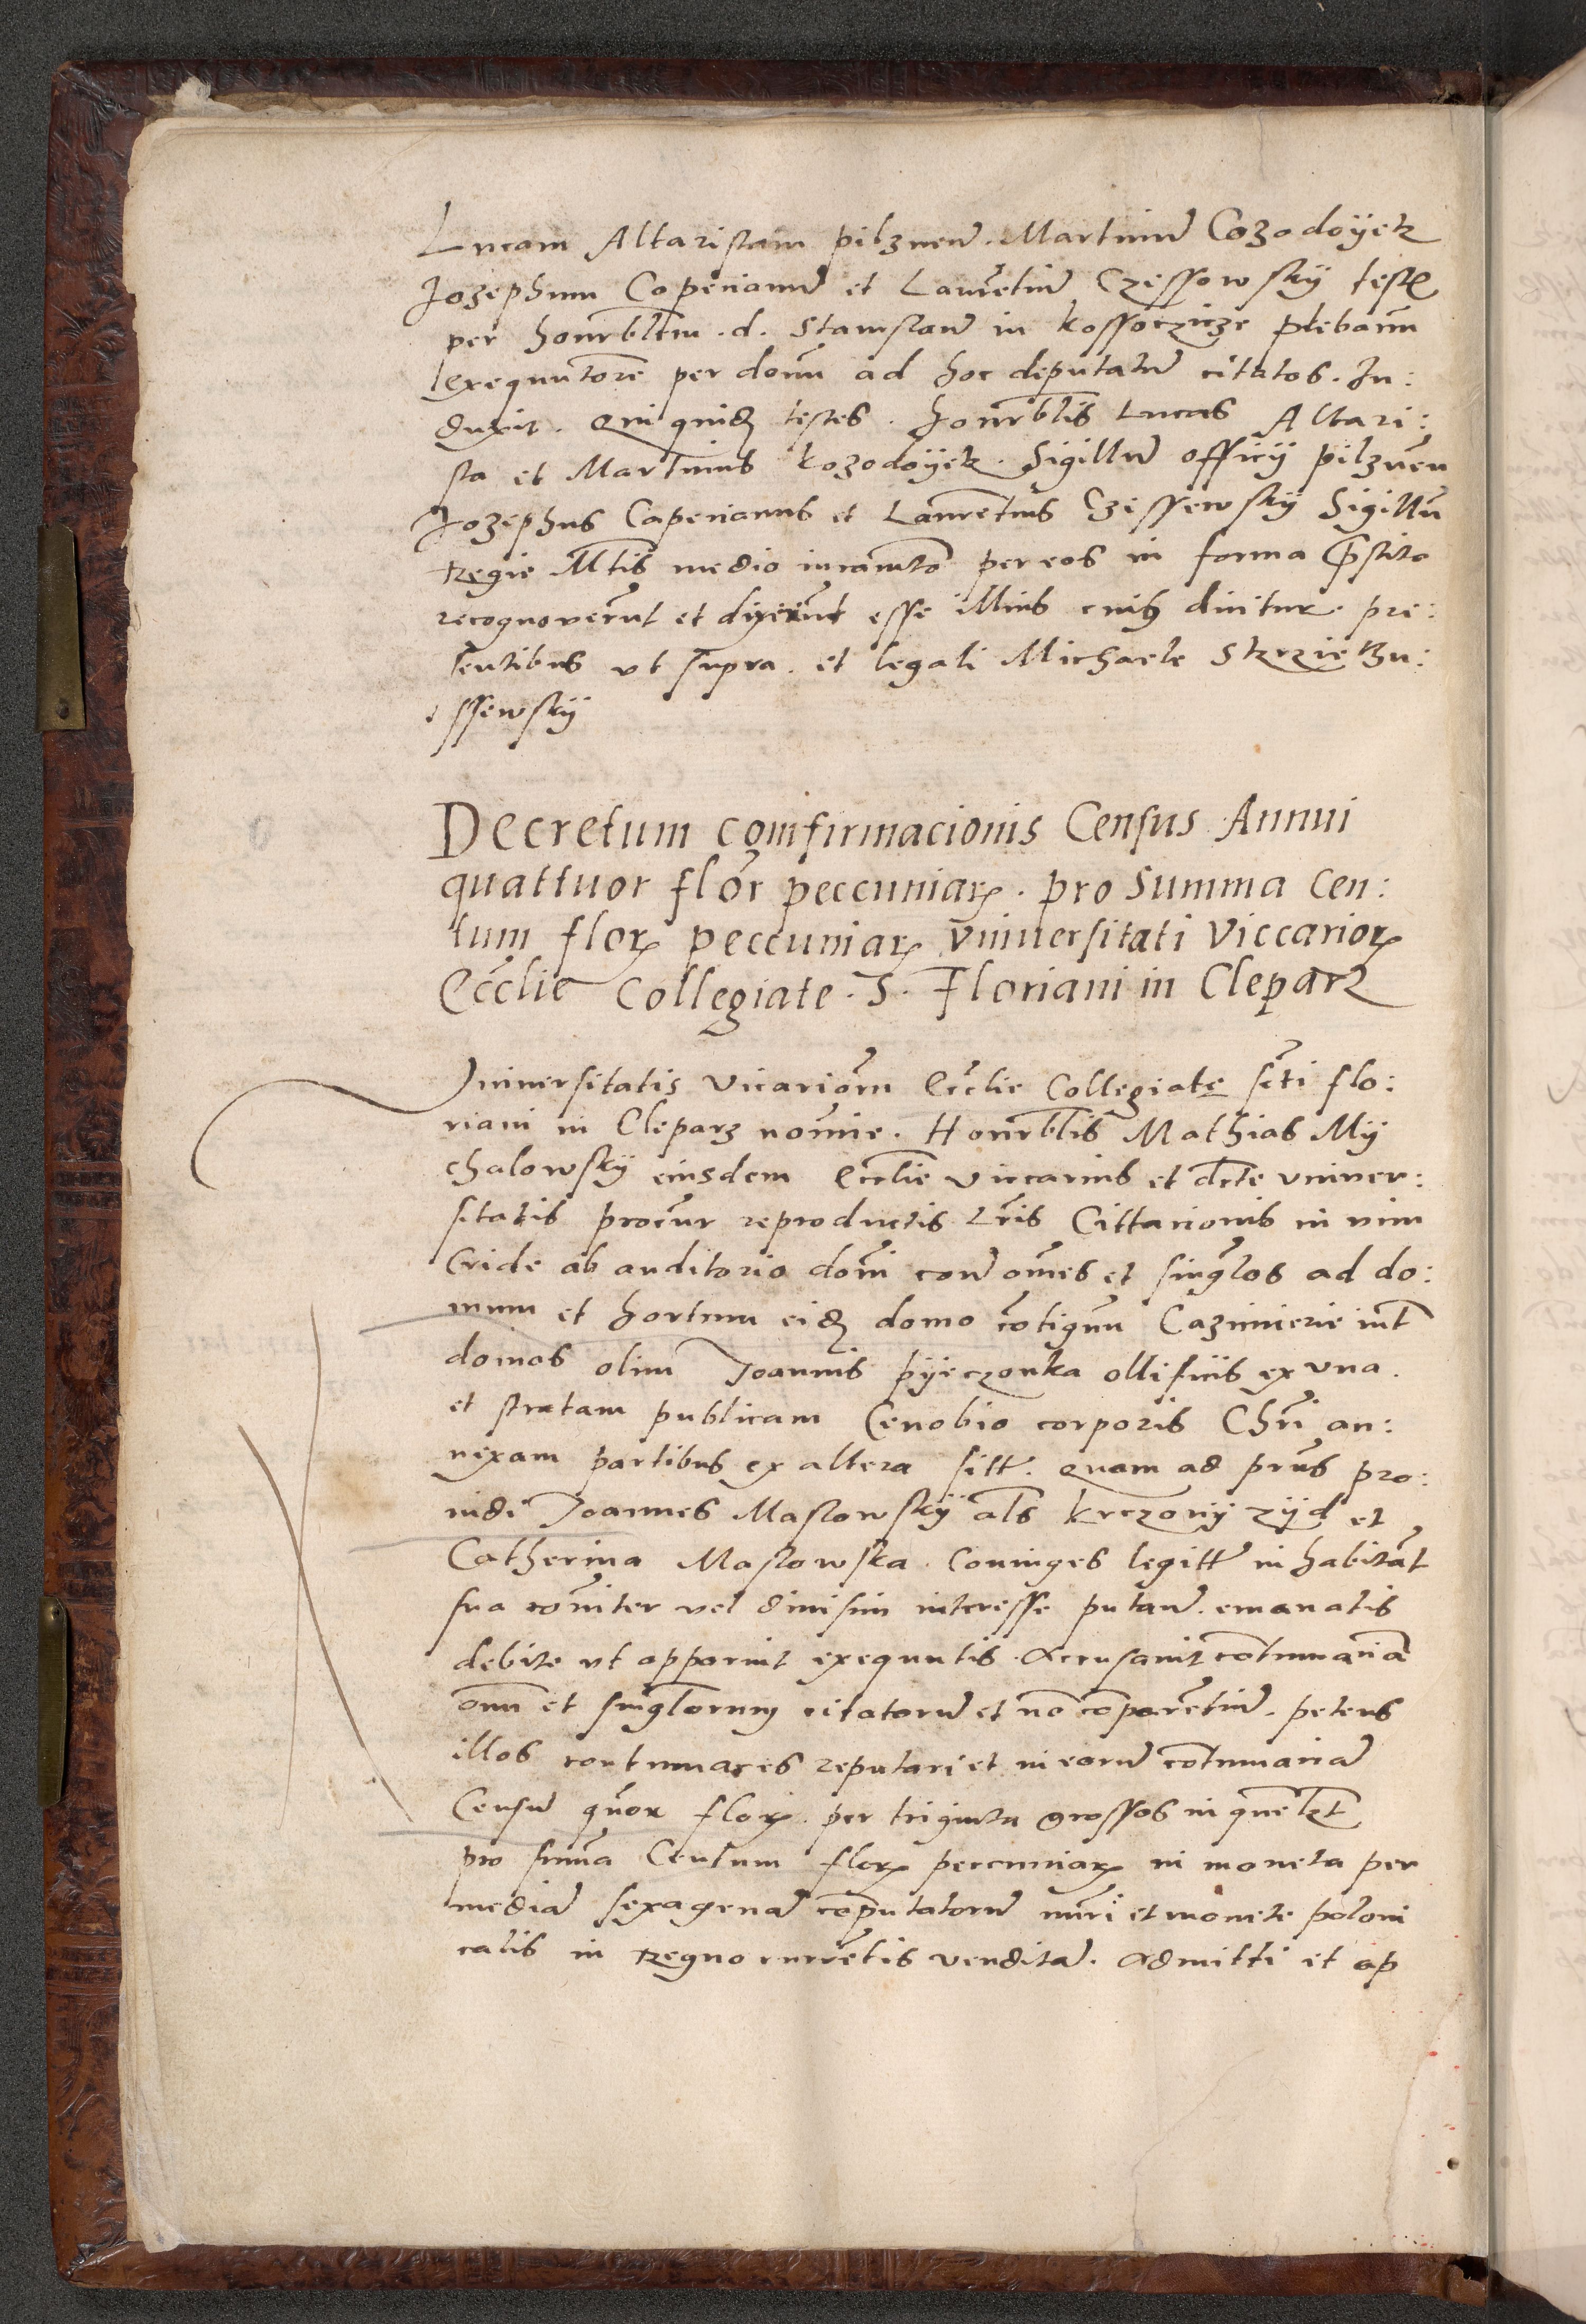 Lucam Altaristam pilznen̄. Martinū Cozodoyek
Jozephum Caperianū et Laurētiū Czessowsky testes
per honrblem .d. Stanislaū in kossoczicze plebanū
exequutorē per domū ad hoc deputatū citatos. In:
duxit. Qui quidē testes. Honrblis Lucas Altari:
sta et Martinus kozodoyek. Sigillū officy pilznen̄
Jozephus Caperianus et Laurētius Czessewsky Sigillū
Regie Mtis medio iuramto per eos in forma p̄stito
recognoverūt et dixerūt esse illius cuius dicitur. pre:
sentibus ut supra. et legali Michaele Strzie
ssewsky
Decretum comfirmacionis Census Annui
quattuor flor̄ peccuniar̄. pro Summa Cen:
tum flor̄ peccuniar̄ Vniversitati Viccarior̄
Eccl̄ie Collegiate .S. Floriani in Cleparz
Vniuersitatis Vicariorū Eccl̄ie Collegiate scti flo:
riani in Cleparz noīe. Honrblis Mathias My
chalowsky eiusdem Eccl̄ie viccarius et dcte vniver:
sitatis procur̄ reproductis Lr̄is Cittacionis in vim
Cride ab auditorio domī con̄ omēs et singlos ad do:
mum et hortum eidē domo cōtiguū Cazimierie int̄
domos olim Joannis pyeczonka ollificis ex vna.
et stratam publicam Cenobio corporis Chri an:
nexam partibus ex altera sitt̄. quam ad prūs pro:
uidi Joannes Maslowsky als krczony zyd et
Catherina Maslowska. Coniuges legitt̄ inhabitāt
sua cōiter vel diuisim interesse putan̄. emanatis
debite ut apparuit exequutis. Accusavit cōtumaciā
omn̄ et singlorum citatorū et nō cōparētiū. petens
illos contumaces reputari et in eorū cōtumaciā
Censū quor flor̄. per triginta grossos in quēlzt
pro summa Centum flor̄ peccuniar̄ in moneta per
mediā sexagenā cōputatorū nūri et monete poloni
calis in Regno currētis venditā. Admitti et ap